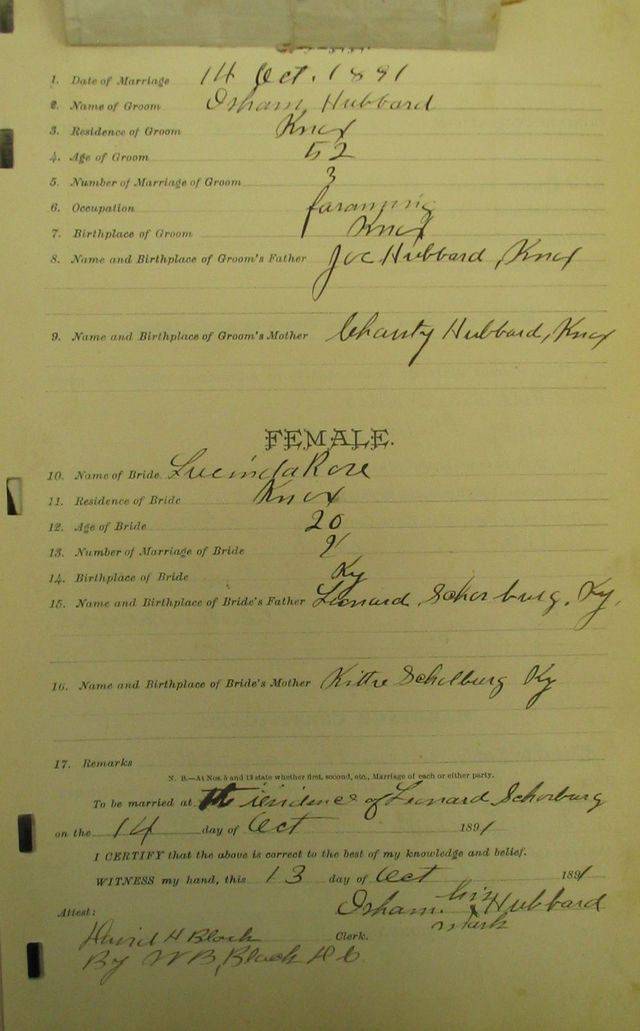 1. Date of Marriage 14 Oct. 1891
2. Name of Groom Isham Hubbard
3. Residence of Groom Knox
4. Age of Groom 52
5. Number of Marriage of Groom 3
6. Occupation
7. Birthplace of Groom Knox
8. Name and Birthplace of Groom's Father Joe Hubbard, Knox
9. Name and Birthplace of Groom's Mother Charity Hubbard, Knox
FEMALE.
10. Name of Bride Lucinda Rose
11. Residence of Bride Knox
12. Age of Bride 20
13. Number of Marriage of Bride 2
14. Birthplace of Bride Ky
15. Name and Birthplace of Bride's Father Leonard Schorburg, Ky,
16. Name and Birthplace of Bride's Mother Kittie Scholburg Ky
17. Remarks
N. B.—At Nos. 5 and 13 state whether first, second, etc., Marriage of each or either party.
To be married at the residence of Leonard Schorburg
on the 14 day of Oct 1891
I CERTIFY that the above is correct to the best of my knowledge and belief.
WITNESS my hand, this 13 day of Oct 1891
Isham his x mark Hubbard
Attest:
David H Black Clerk.
By W B, Black D C